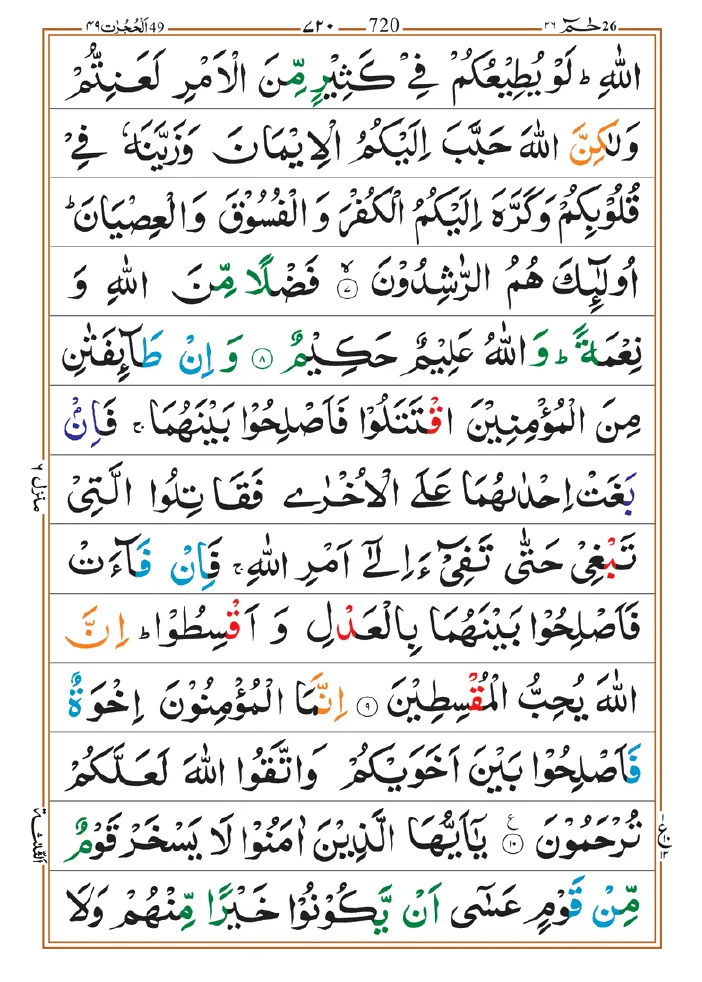 26 حٰمٓ ٢٦
720 ٧٢٠
49 اَلْحُجُرٰت ٤٩
اللّٰهِ ؕ لَوْ يُطِيْعُكُمْ فِيْ كَثِيْرٍ مِّنَ الْاَمْرِ لَعَنِتُّمْ
وَلٰكِنَّ اللّٰهَ حَبَّبَ اِلَيْكُمُ الْاِيْمَانَ وَزَيَّنَهٗ فِيْ
قُلُوْبِكُمْ وَكَرَّهَ اِلَيْكُمُ الْكُفْرَ وَالْفُسُوْقَ وَالْعِصْيَانَ ؕ
اُولٰٓئِكَ هُمُ الرّٰشِدُوْنَ ۙ ٧ فَضْلًا مِّنَ اللّٰهِ وَ
نِعْمَةً ؕ وَاللّٰهُ عَلِيْمٌ حَكِيْمٌ ٨ وَاِنْ طَآئِفَتٰنِ
مِنَ الْمُؤْمِنِيْنَ اقْتَتَلُوْا فَاَصْلِحُوْا بَيْنَهُمَا ۚ فَاِنْۢ
بَغَتْ اِحْدٰىهُمَا عَلَى الْاُخْرٰى فَقَاتِلُوا الَّتِيْ
تَبْغِيْ حَتّٰى تَفِيْٓءَ اِلٰٓى اَمْرِ اللّٰهِ ۚ فَاِنْ فَآءَتْ
فَاَصْلِحُوْا بَيْنَهُمَا بِالْعَدْلِ وَ اَقْسِطُوْا ؕ اِنَّ
اللّٰهَ يُحِبُّ الْمُقْسِطِيْنَ ٩ اِنَّمَا الْمُؤْمِنُوْنَ اِخْوَةٌ
فَاَصْلِحُوْا بَيْنَ اَخَوَيْكُمْ وَاتَّقُوا اللّٰهَ لَعَلَّكُمْ
تُرْحَمُوْنَ ١٠ ع يٰٓاَيُّهَا الَّذِيْنَ اٰمَنُوْا لَا يَسْخَرْ قَوْمٌ
مِّنْ قَوْمٍ عَسٰٓى اَنْ يَّكُوْنُوْا خَيْرًا مِّنْهُمْ وَلَا
منزل ٦